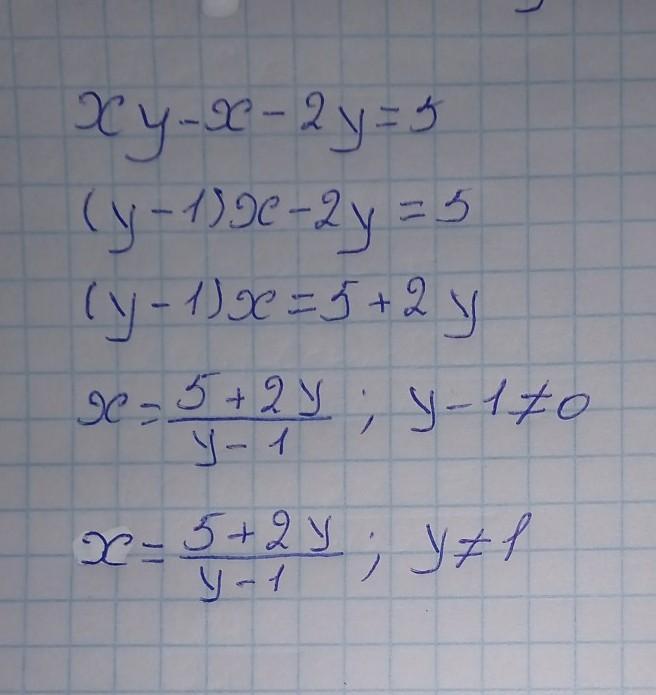 xy-x-2y=5
(y-1)x-2y=5
(y-1)x=5+2y
x=\frac{5+2y}{y-1}; y-1≠0
x=\frac{5+2y}{y-1}; y≠1